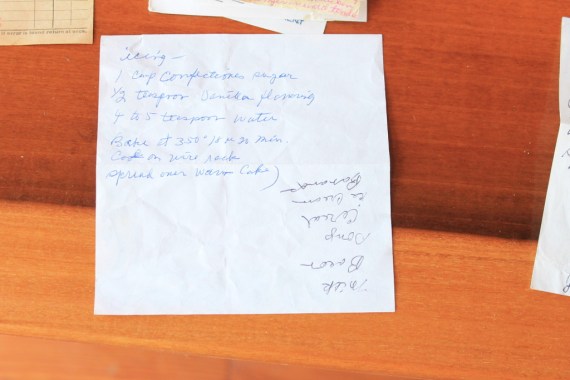 icing —
1 cup Confectioners sugar
1/2 teaspoon Vanilla flavoring
4 to 5 teaspoon water
Bake at 350° 18 or 20 min.
Cool on wire rack
Spread over Warm Cake)
Milk
Bacon
Soup
Cereal
ice cream
Bananas